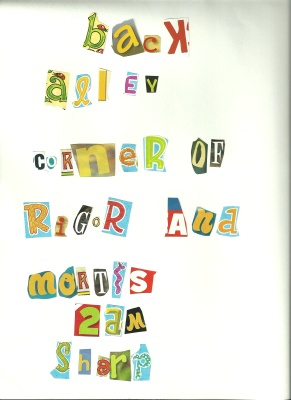 back
alley
corner of
RiGoR And
morTis
2am
Sharp